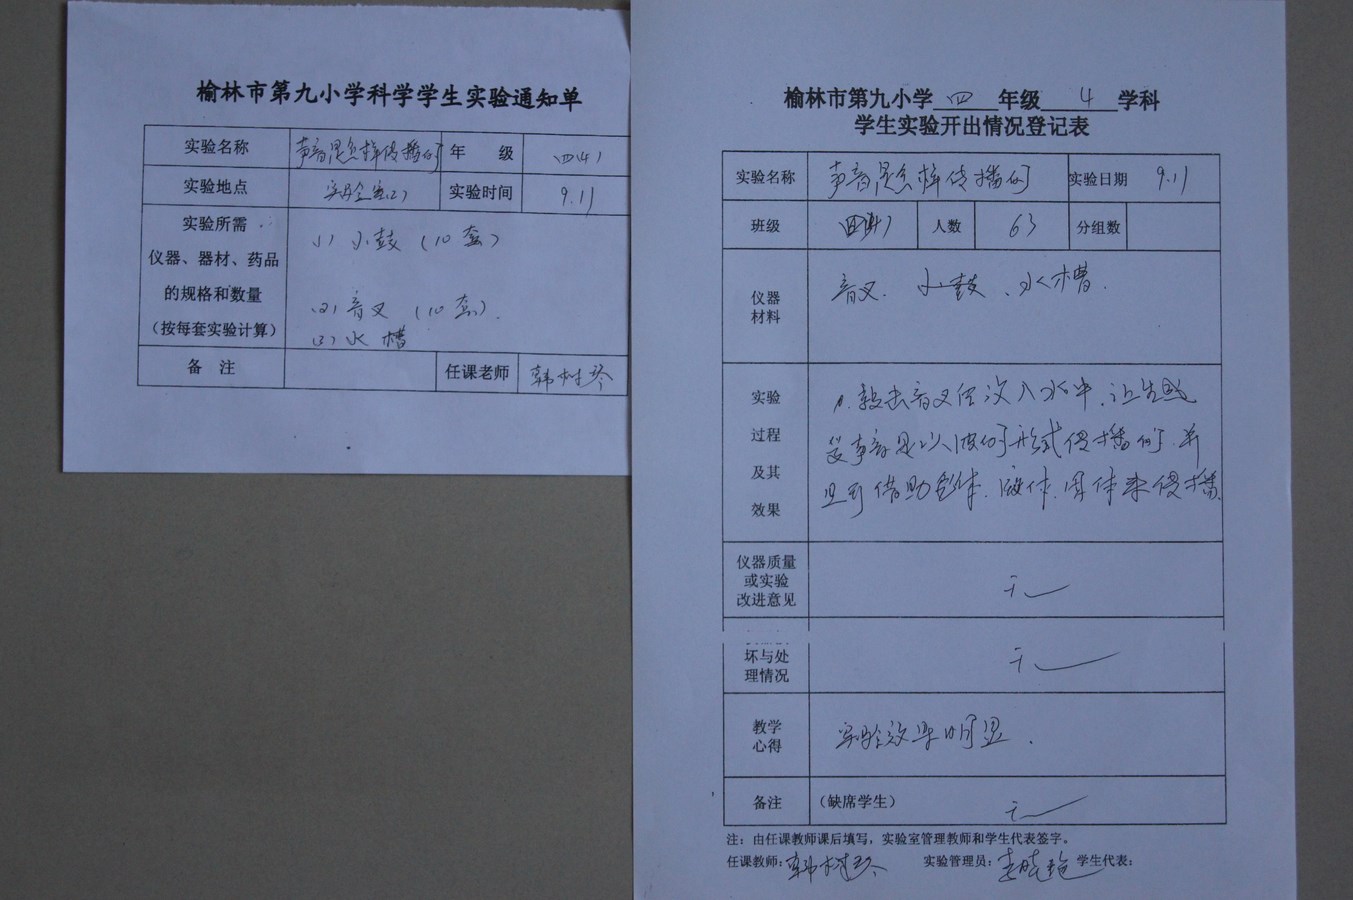 榆林市第九小学科学学生实验通知单
实验名称 声音是怎样传播的 年 级 四(4)
实验地点 实验室(2) 实验时间 9.11
实验所需
仪器、器材、药品
的规格和数量
(按每套实验计算)
(1) 小鼓 (10套)
(2) 音叉 (10套).
(3) 水槽
备 注 任课老师 韩树琴
榆林市第九小学 四 年级 4 学科
学生实验开出情况登记表
实验名称 声音是怎样传播的 实验日期 9.11
班级 四(4) 人数 63 分组数
仪器
材料
音叉. 小鼓、水槽.
实验
过程
及其
效果
敲击音叉 没入水中.让生感
受声音是以波的形式传播的.并
且可借助气体.液体.固体来传播.
仪器质量
或实验
改进意见
无
坏与处
理情况
无
教学
心得
实验效果明显.
备注 (缺席学生) 无
注：由任课教师课后填写，实验室管理教师和学生代表签字。
任课教师：韩树琴 实验管理员： 学生代表：